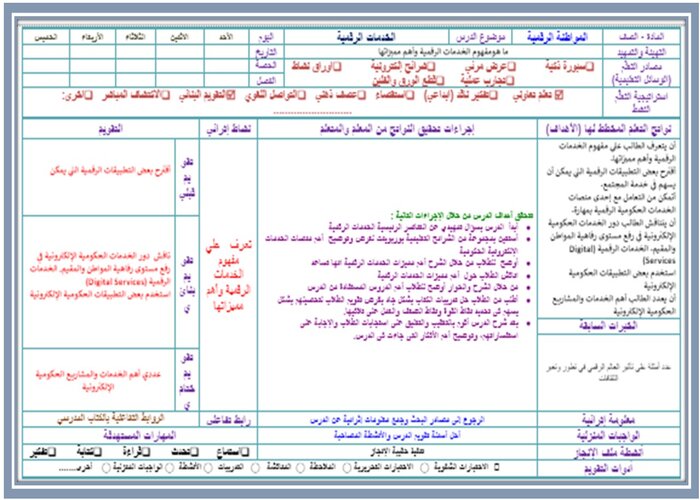 المادة - الصف المواطنة الرقمية موضوع الدرس الخدمات الرقمية اليوم الأحد الاثنين الثلاثاء الأربعاء الخميس
التهيئة والتمهيد ما هو مفهوم الخدمات الرقمية وأهم مميزاتها التاريخ
مصادر التعلم (الوسائل التعليمية) سبورة ذكية عرض مرئي شرائح إلكترونية أوراق نشاط الحصة
تجارب عملية قطع الورق والفلين الفصل
استراتيجية التعلم النشط تعلم تعاوني تفكير ناقد (إبداعي) استقصاء عصف ذهني التواصل اللغوي التقويم البنائي الاكتشاف المباشر أخرى:
نواتج التعلم المخطط لها (الأهداف) إجراءات تحقيق النواتج من المعلم والمتعلم نشاط إثرائي التقويم
أن يتعرف الطالب على مفهوم الخدمات الرقمية وأهم مميزاتها.
أقترح بعض التطبيقات الرقمية التي يمكن أن يسهم في خدمة المجتمع.
أتمكن من التعامل مع إحدى منصات الخدمات الحكومية الرقمية بمهارة.
أن يتناقش الطالب دور الخدمات الحكومية الإلكترونية في رفع مستوى رفاهية المواطن والمقيم. الخدمات الرقمية (Digital Services)
استخدم بعض التطبيقات الحكومية الإلكترونية
أن يعدد الطالب أهم الخدمات والمشاريع الحكومية الإلكترونية
الخبرات السابقة
عدد أمثلة على تأثير العالم الرقمي في تطور وتغير الثقافات
تتحقق أهداف الدرس من خلال الإجراءات التالية :
أبدأ الدرس بسؤال تمهيدي عن العناصر الرئيسية الخدمات الرقمية
أستعين بمجموعة من الشرائح التعليمية بوربوينت لعرض وتوضيح أهم منصات الخدمات الإلكترونية الحكومية
أوضح للطلاب من خلال الشرح أهم مميزات الخدمات الرقمية
أناقش الطلاب حول أهم مميزات الخدمات الرقمية
من خلال الشرح والحوار أوضح للطلاب أهم الدروس المستفادة من الدرس
أطلب من الطلاب حل تدريبات الكتاب بشكل جاد بغرض تقويم الطلاب لتحصيلهم بشكل يسهم في تحديد نقاط القوة ونقاط الضعف والعمل على تلافيها.
بعد شرح الدرس أقوم بالتعقيب والتعليق على استجابات الطلاب والإجابة على استفساراتهم، وتوضيح أهم الأفكار التي جاءت في الدرس.
تعرف على مفهوم الخدمات الرقمية وأهم مميزاتها
تقويم قبلي
أقترح بعض التطبيقات الرقمية التي يمكن
تقويم بنائي
ناقش دور الخدمات الحكومية الإلكترونية في رفع مستوى رفاهية المواطن والمقيم. الخدمات الرقمية (Digital Services)
استخدم بعض التطبيقات الحكومية الإلكترونية
تقويم ختامي
عددي أهم الخدمات والمشاريع الحكومية الإلكترونية
معلومة إثرائية الرجوع إلى مصادر البحث وجمع معلومات إثرائية عن الدرس رابط تفاعلي الروابط التفاعلية بالكتاب المدرسي
الواجبات المنزلية أحل أسئلة تقويم الدرس والأنشطة المصاحبة المهارات المستهدفة
أنشطة ملف الإنجاز حقيبة الإنجاز استماع تحدث قراءة كتابة تفكير
أدوات التقويم الاختبارات الشفوية الاختبارات التحريرية الملاحظة المناقشة التدريبات الأنشطة الواجبات المنزلية أخرى......